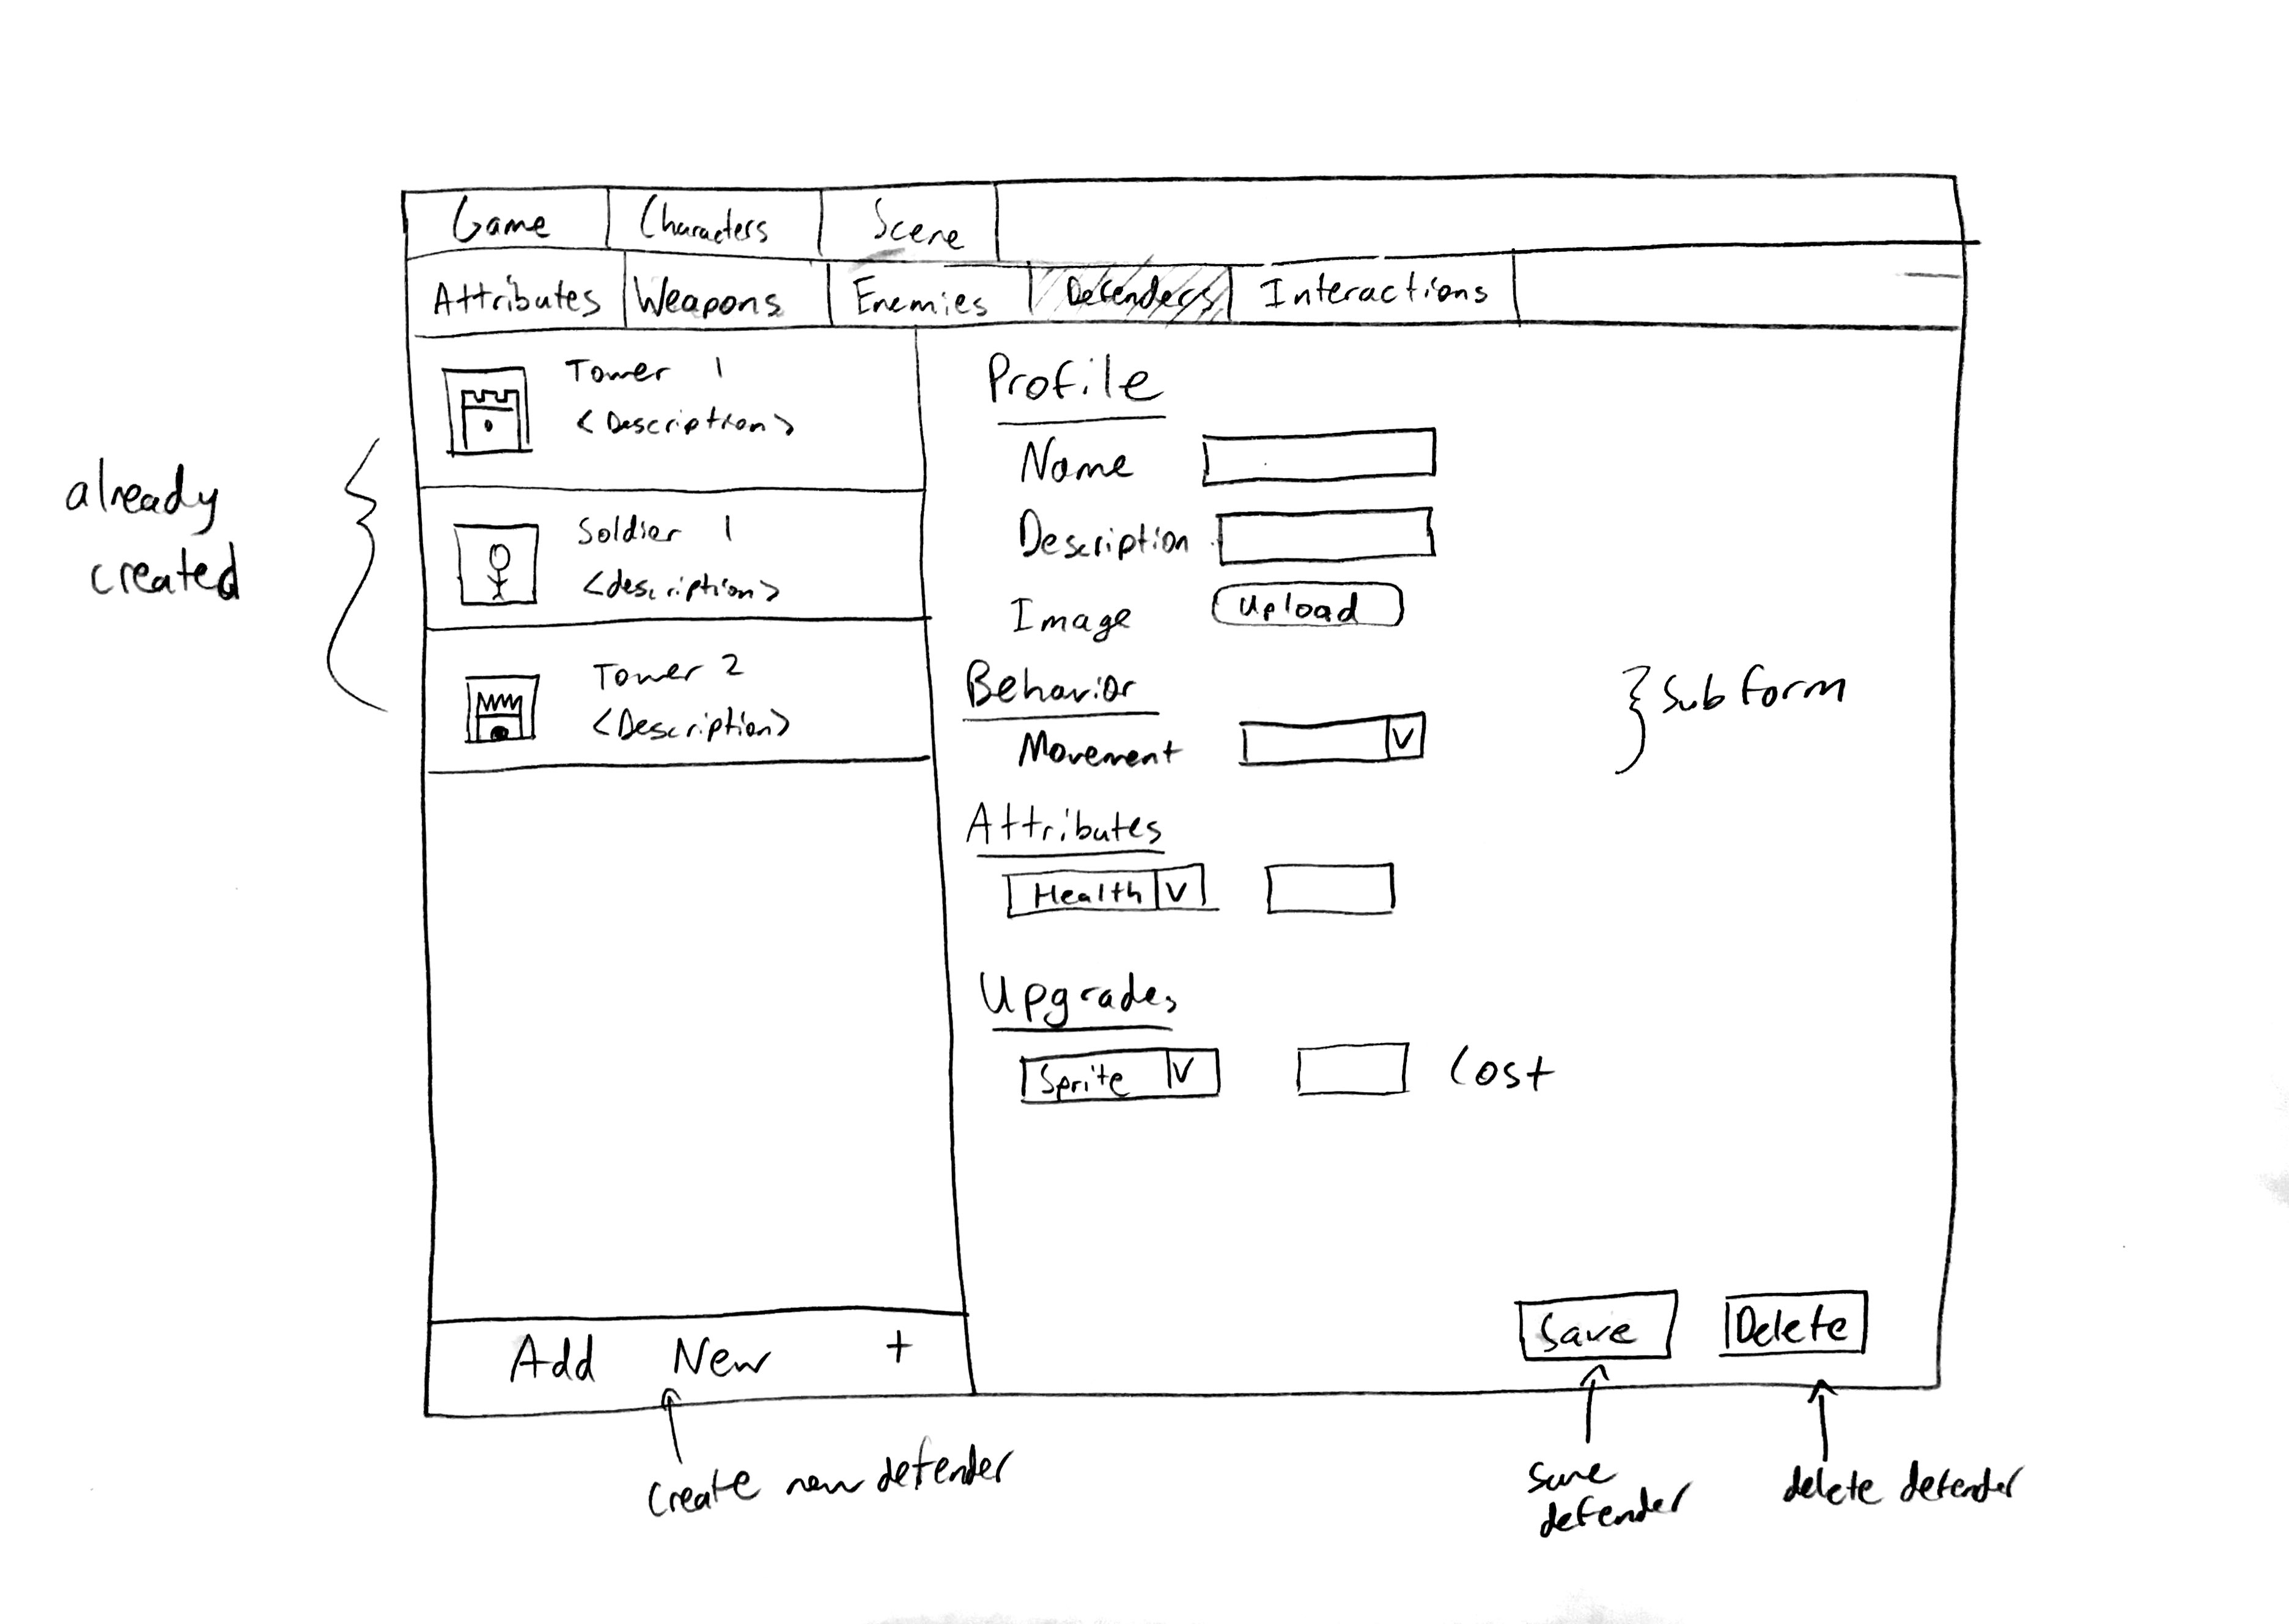 Game Characters Scene
Attributes Weapons Enemies Defenders Interactions
Tower 1
<Description>
Soldier 1
<description>
Tower 2
<Description>
already
created
Add New +
create new defender
Profile
Name
Description
Image Upload
Behavior
Movement V
Sub form
Attributes
Health V
Upgrades
Sprite V Cost
Save Delete
save
defender
delete defender